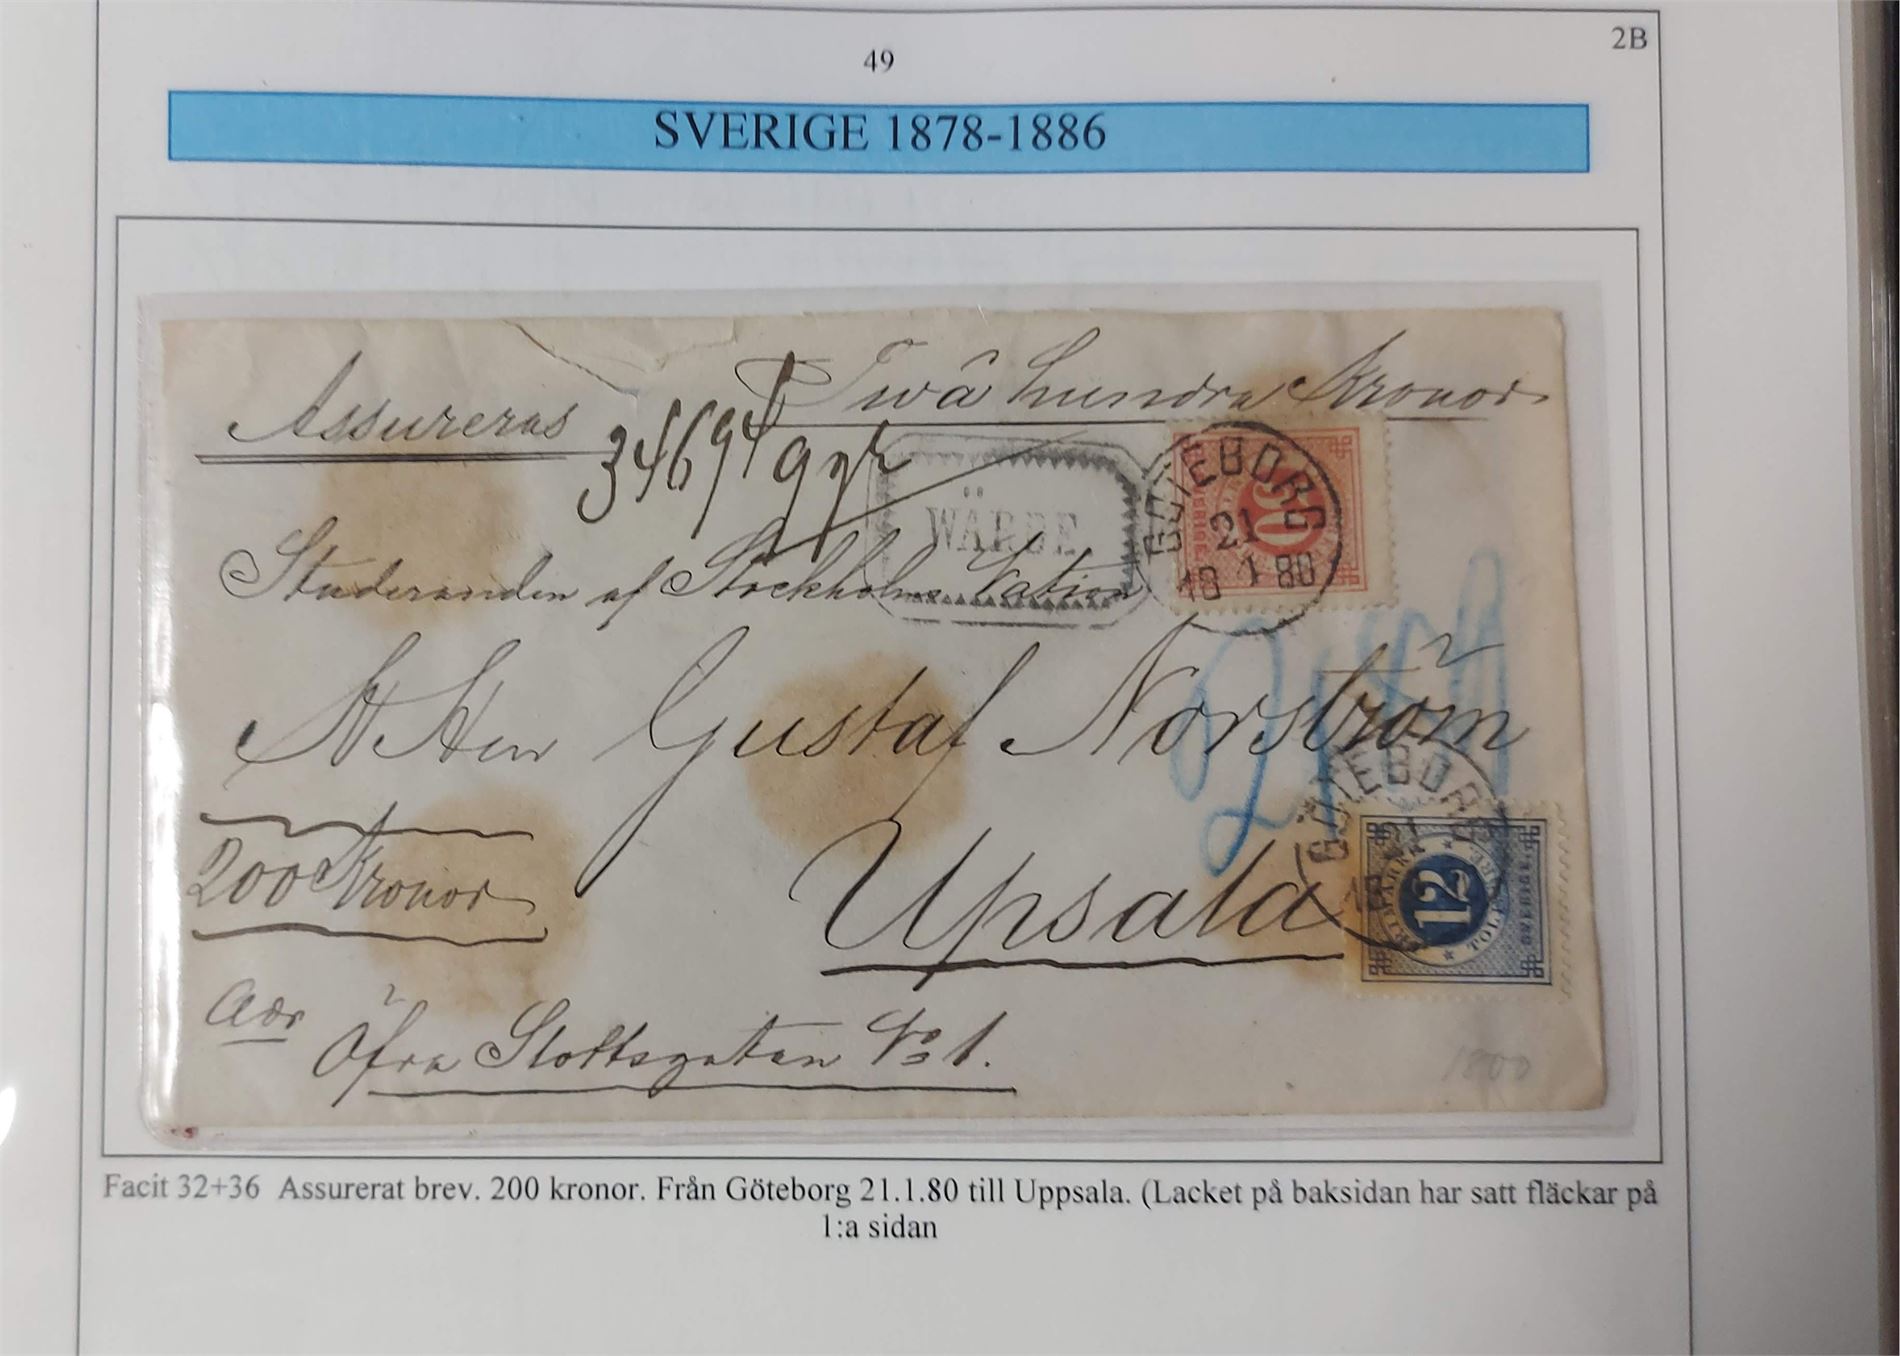 2B
49
SVERIGE 1878-1886
Twå hundra Kronor
Assureras
34694
WÄRDE
GÖTEBORG
21
18 1 80
Studeranden af Stockholms Nation
Herr Gustaf Norström
200 Kronor
Upsala
GÖTEBORG
21
FRIMÄRKE
TOLF ÖRE
12
SVERIGE
Adr
Öfra Slottsgatan No 1.
1800
Facit 32+36 Assurerat brev. 200 kronor. Från Göteborg 21.1.80 till Uppsala. (Lacket på baksidan har satt fläckar på
1:a sidan